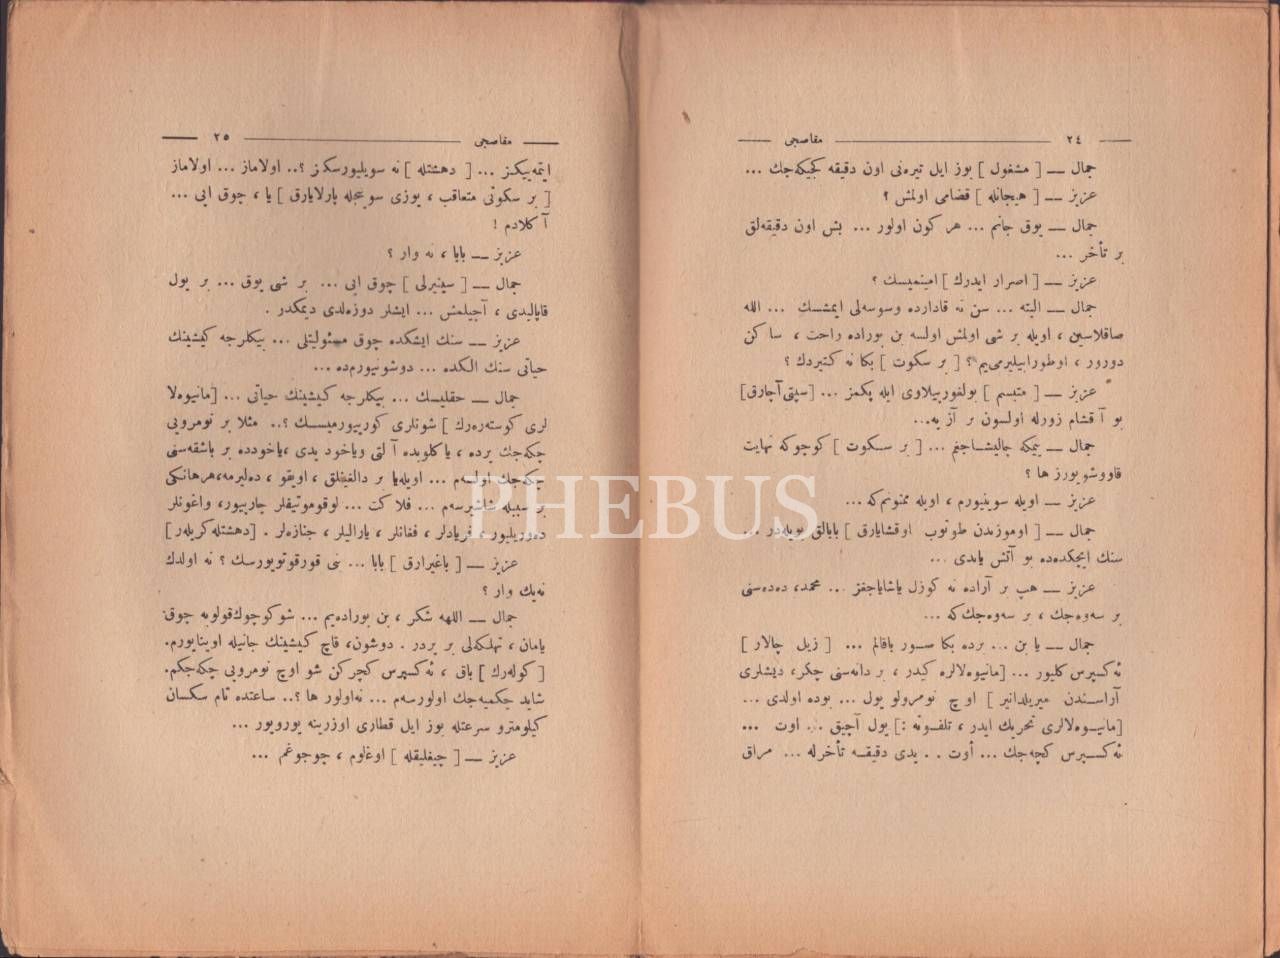 ٢٤ مقاصجی
جمال — [ مشغول ] يوز ايل تيره‌نی اون دقيقه كجيكه‌جك ...
عزيز — [ هيجانله ] قضامی اولمش ؟
جمال — يوق جانم ... هر كون اولور ... بش اون دقيقه‌لق
بر تأخر ...
عزيز — [ اصرار ايدرك ] امينميسك ؟
جمال — البته ... سن نه قادارده وسوسه‌لی ايمشسك ... الله
صاقلاسين ، اويله بر شی اولمش اولسه بن بوراده راحت ، ساكن
دورور ، اوطورابيليرمی‌يم ؟ [ بر سكوت ] بكا نه كتيردك ؟
عزيز — [ متبسم ] بولغور پيلاوی ايله پكمز ... [سپتی آچارق]
بو آقشام زورله اولسون بر آز يه...
جمال — يمكه چاليشاجغم ... [ بر سكوت ] كوچوكه نهايت
قاووشويورز ها ؟
عزيز — اويله سوينيورم ، اويله ممنونم‌كه ...
جمال — [ اوموزندن طوتوب اوقشايارق ] بابالق بويله‌در ...
سنك ايچكده‌ده بو آتش ياندی ...
عزيز — هپ بر آراده نه كوزل ياشاياجغز ... محمد، دده‌سنی
بر سه‌وه‌جك ، بر سه‌وه‌جك‌كه ...
جمال — يا بن ... برده بكا سور باقالم ... [ زيل چالار ]
ئه‌كسپرس كليور ... [مانيوه‌لالره كيدر ، بر دانه‌سنی چكر، ديشلری
آراسندن ميريلدانير ] اوچ نومرولو يول ... بوده اولدی ...
[مانيوه‌لالری تحريك ايدر ، تلفونه :] يول آچيق ... اوت ...
ئه‌كسپرس كچه‌جك ... أوت .. يدی دقيقه تأخرله ... مراق
مقاصجی ٢٥
ايتمه‌ييكز ... [ دهشتله ] نه سويليورسكز ؟.. اولاماز ... اولاماز
[ بر سكوتی متعاقب ، يوزی سوينجله پارلايارق ] يا ، چوق ايی ...
آكلادم !
عزيز — بابا ، نه وار ؟
جمال — [ سينيرلی ] چوق ايی ... بر شی يوق ... بر يول
قاپالیدی ، آچيلمش ... ايشلر دوزه‌لدی ديمكدر .
عزيز — سنك ايشكده چوق مسئوليتلی ... بيكلرجه كيشينك
حياتی سنك الكده ... دوشونيورم‌ده ...
جمال — حقليسك ... بيكلرجه كيشينك حياتی ... [مانيوه‌لا
لری كوستره‌رك ] شونلری كورييورميسك ؟.. مثلا بر نومرويی
چكه‌جك يرده ، ياكلوبده آلتی وياخود يدی ، ياخودده بر باشقه‌سنی
چكه‌جك اولسه‌م ... اويله‌يا بر دالغينلق ، اويقو ، ده‌ليرمه،هرهانكی
بر سببله شاشيرسه‌م ... فلاكت ... لوقوموتيفلر چارپيور، واغونلر
ده‌وريليور، فريادلر ، فغانلر ، ياراليلر ، جنازه‌لر . [دهشتله كريله‌ر]
عزيز — [ باغيرارق ] بابا ... بنی قورقوتويورسك ؟ نه اولدك
نه‌يك وار ؟
جمال — اللهه شكر ، بن بوراده‌يم ... شو كوچوك‌قولوبه چوق
يامان ، تهلكه‌لی بر يردر . دوشون، قاچ كيشينك جانيله اوينايورم.
[ كوله‌رك ] باق ، ئه‌كسپرس كچركن شو اوچ نومرويی چكه‌جكم.
شايد چكميه‌جك اولورسه‌م ... نه‌اولور ها ؟.. ساعتده تام سكسان
كيلومترو سرعتله يوز ايل قطاری اوزرينه يورويور ...
عزيز — [ چيغليقله ] اوغلوم ، چوجوغم ...
PHEBUS